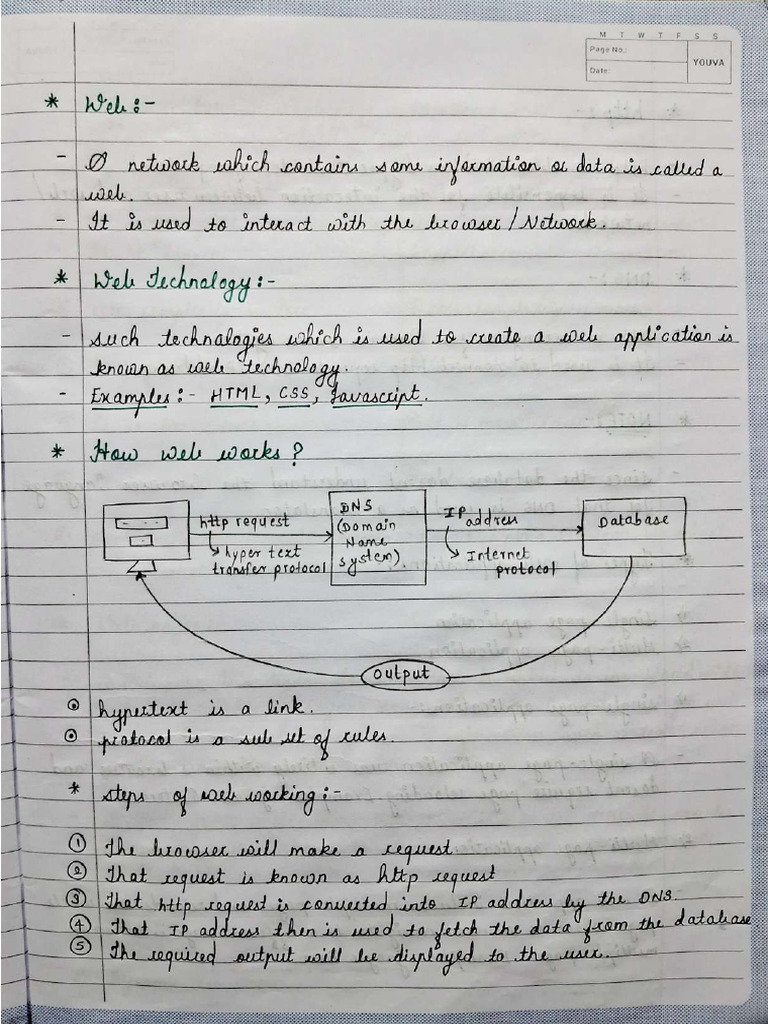 M T W T F S S
Page No.:
YOUVA
Date:
* Web:-
- A network which contains some information or data is called a
web.
- It is used to interact with the browser/Network.
* Web Technology:-
- such technologies which is used to create a web application is
known as web technology.
- Examples:- HTML, CSS, Javascript.
* How web works?
http request
hyper text
transfer protocol
DNS
(Domain
Name
system).
IP address
Internet
protocol
Database
output
hypertext is a link.
protocol is a sub set of rules.
* steps of web working:-
1 The browser will make a request
2 That request is known as http request
3 That http request is converted into IP address by the DNS.
4 That IP address then is used to fetch the data from the database
5 The required output will be displayed to the user.